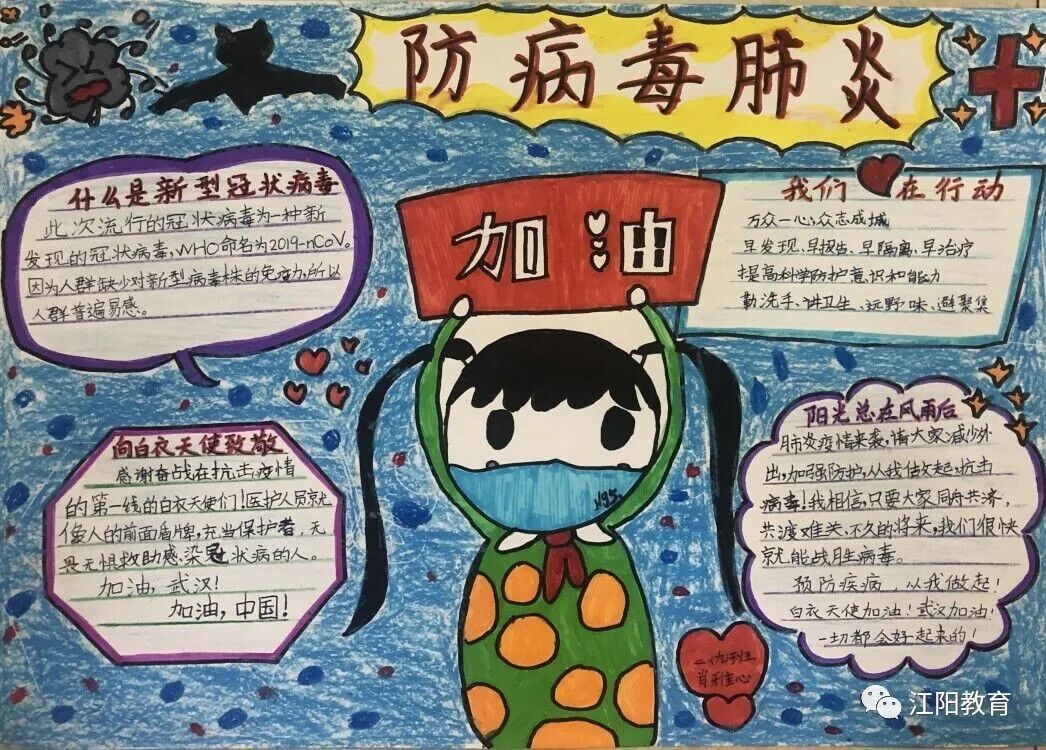 防病毒肺炎
什么是新型冠状病毒
此次流行的冠状病毒为一种新
发现的冠状病毒，WHO命名为2019-nCoV。
因为人群缺少对新型病毒株的免疫力，所以
人群普遍易感。
加油
我们在行动
万众一心，众志成城
早发现、早报告、早隔离、早治疗
提高科学防护意识和能力
勤洗手、讲卫生、远野味、避聚集
向白衣天使致敬
感谢奋战在抗击疫情
的第一线的白衣天使们！医护人员就
像人的前面盾牌，充当保护者，无
畏无惧救助感染冠状病的人。
加油，武汉！
加油，中国！
阳光总在风雨后
肺炎疫情来袭，请大家减少外
出，加强防护，从我做起，抗击
病毒！我相信，只要大家同舟共济，
共渡难关，不久的将来，我们很快
就能战胜病毒。
预防疾病，从我做起！
白衣天使加油！武汉加油！
一切都会好起来的！
N95
班
肖雅心
江阳教育